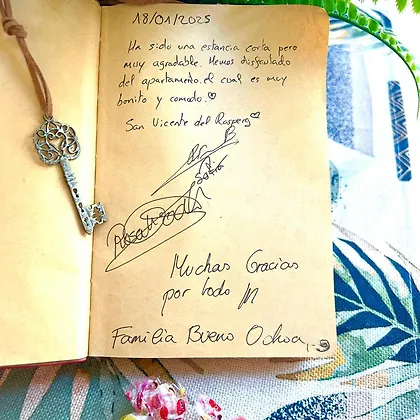 18/01/2025
Ha sido una estancia corta pero
muy agradable. Hemos disfrutado
del apartamento, el cual es muy
bonito y comodo.
San Vicente del Raspeig
Muchas Gracias
por todo
Familia Bueno Ochoa